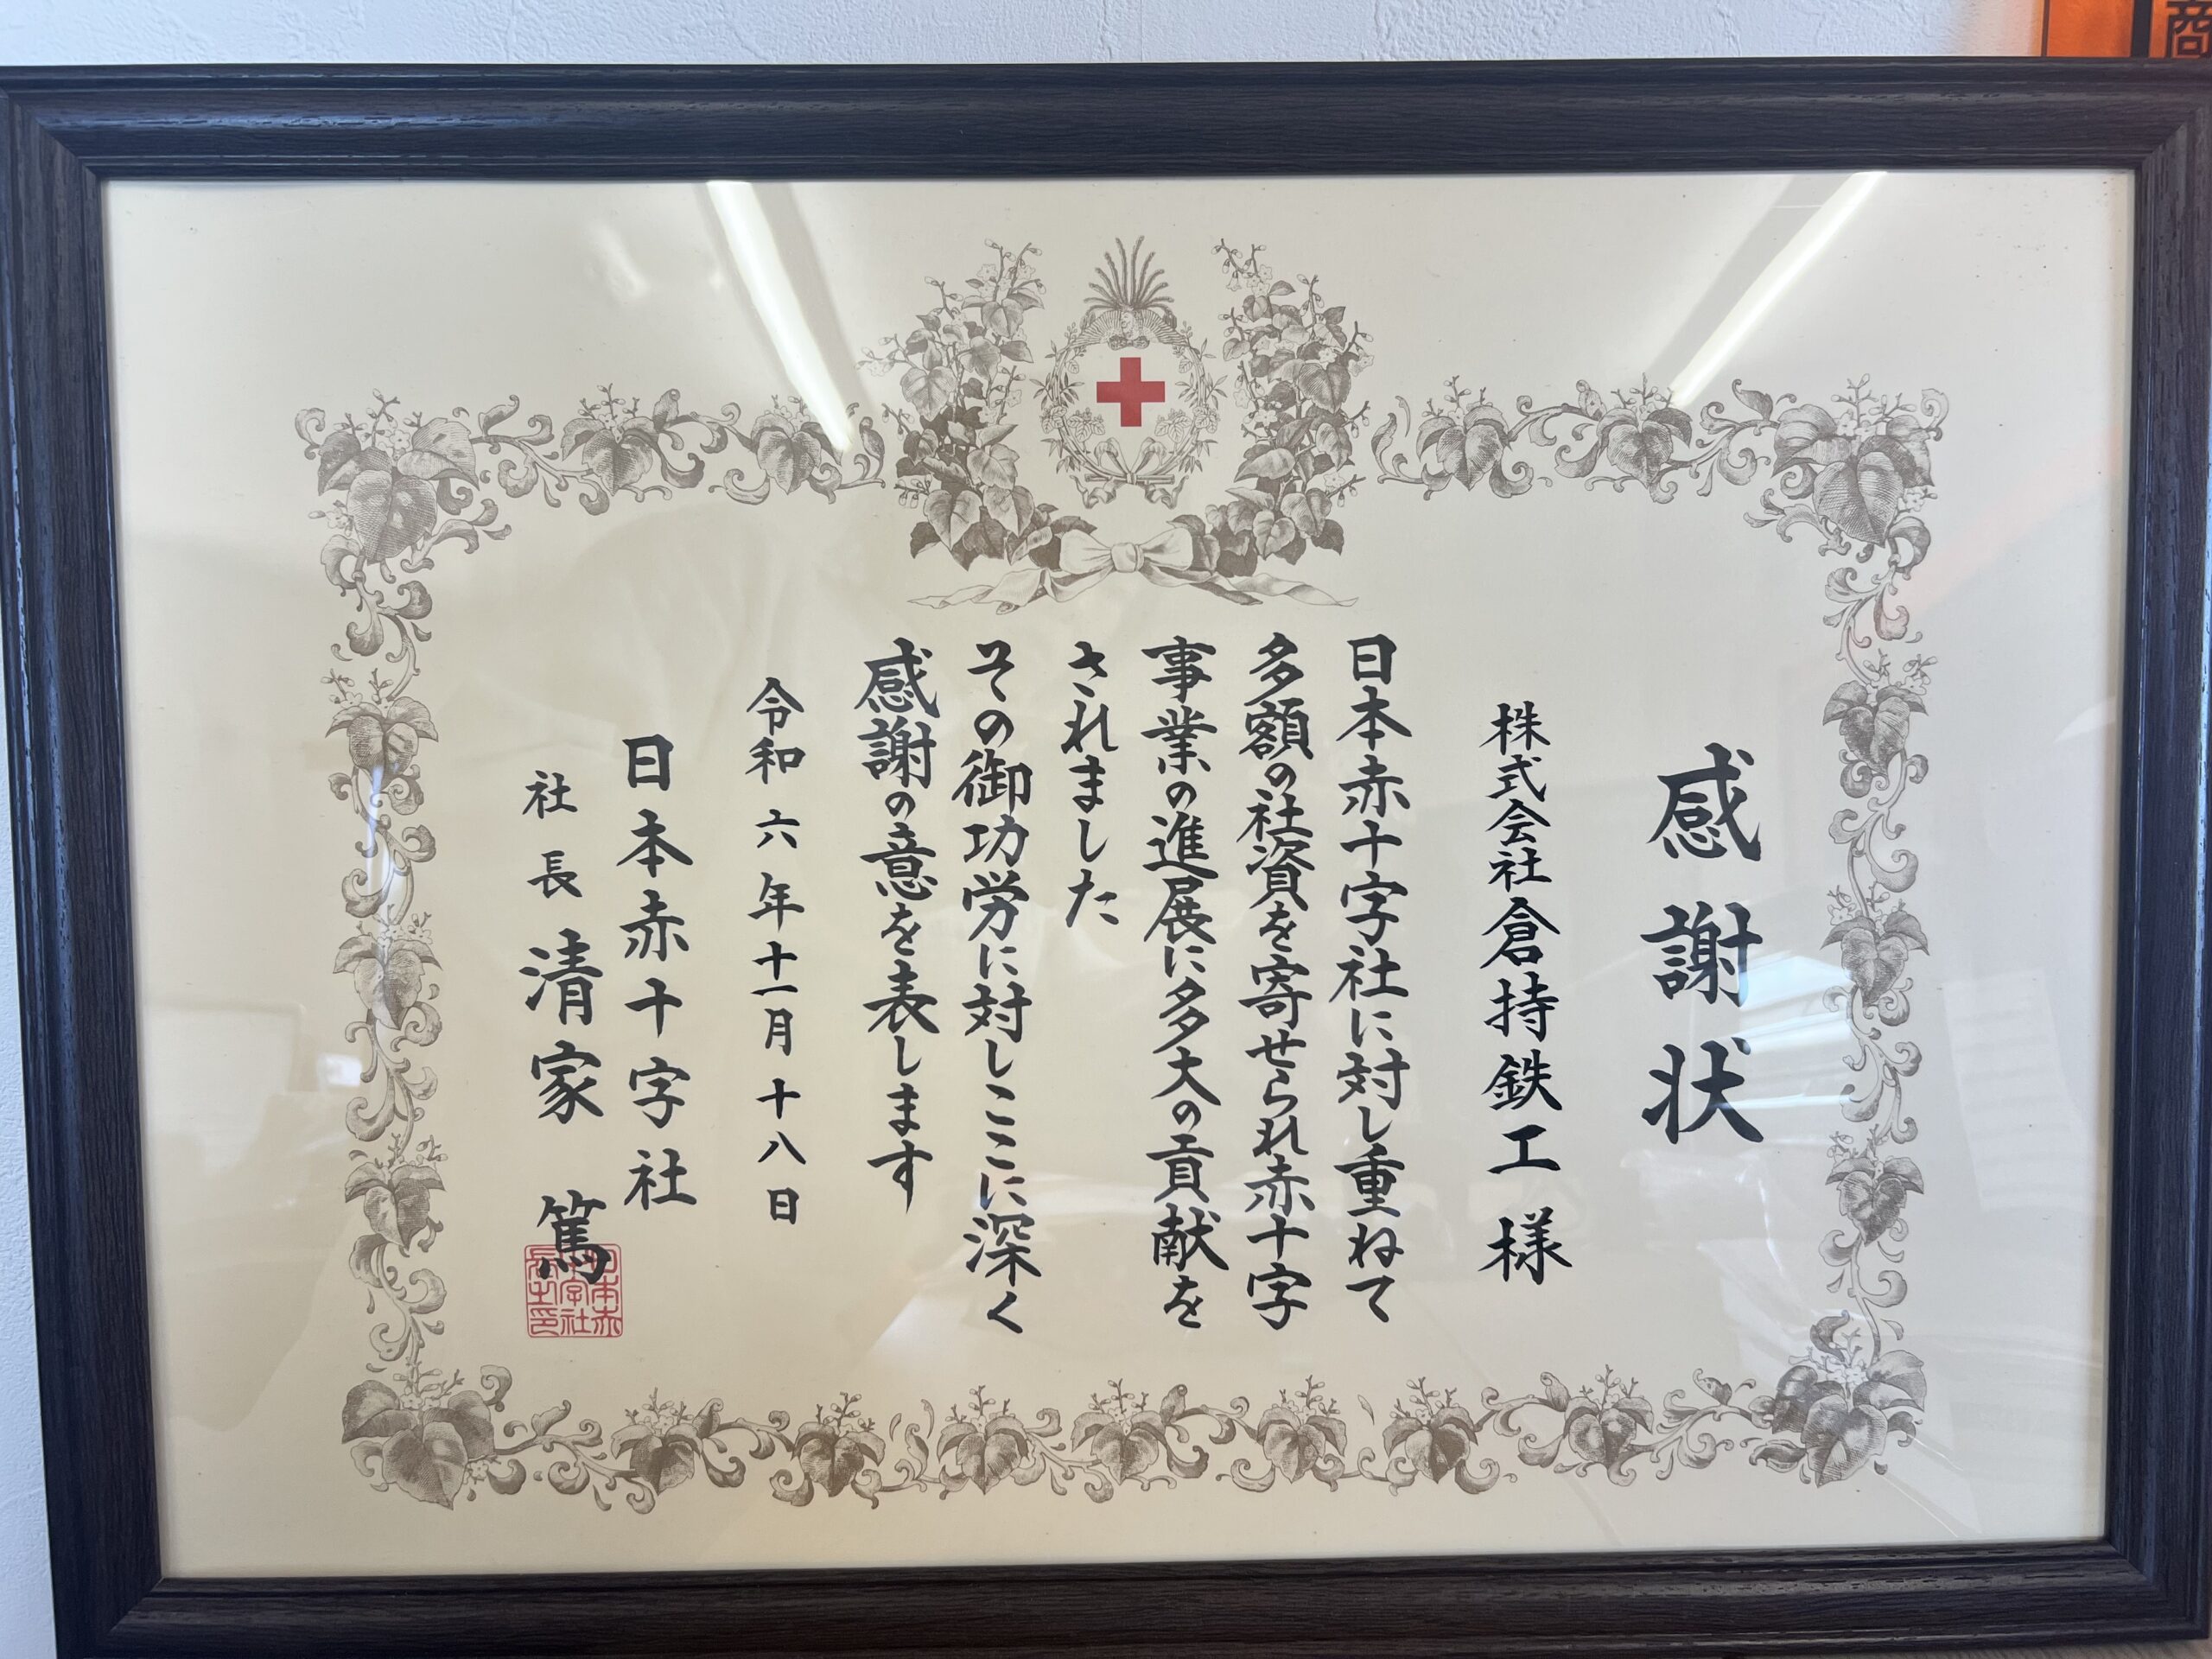 感謝状
株式会社倉持鉄工様
日本赤十字社に対し重ねて
多額の社資を寄せられ赤十字
事業の進展に多大の貢献を
されました
その御功労に対しここに深く
感謝の意を表します
令和六年十一月十八日
日本赤十字社
社長 清家 篤
日本赤十字社長之印
商